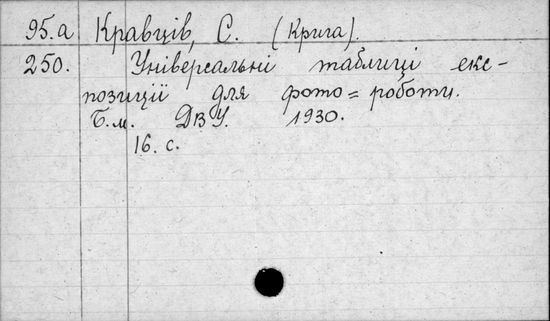 95.а Кравців, С. (Крига).
250. Універсальні таблиці екс-
позиції для фото=роботи.
Б.м. ДВУ. 1930.
16. с.